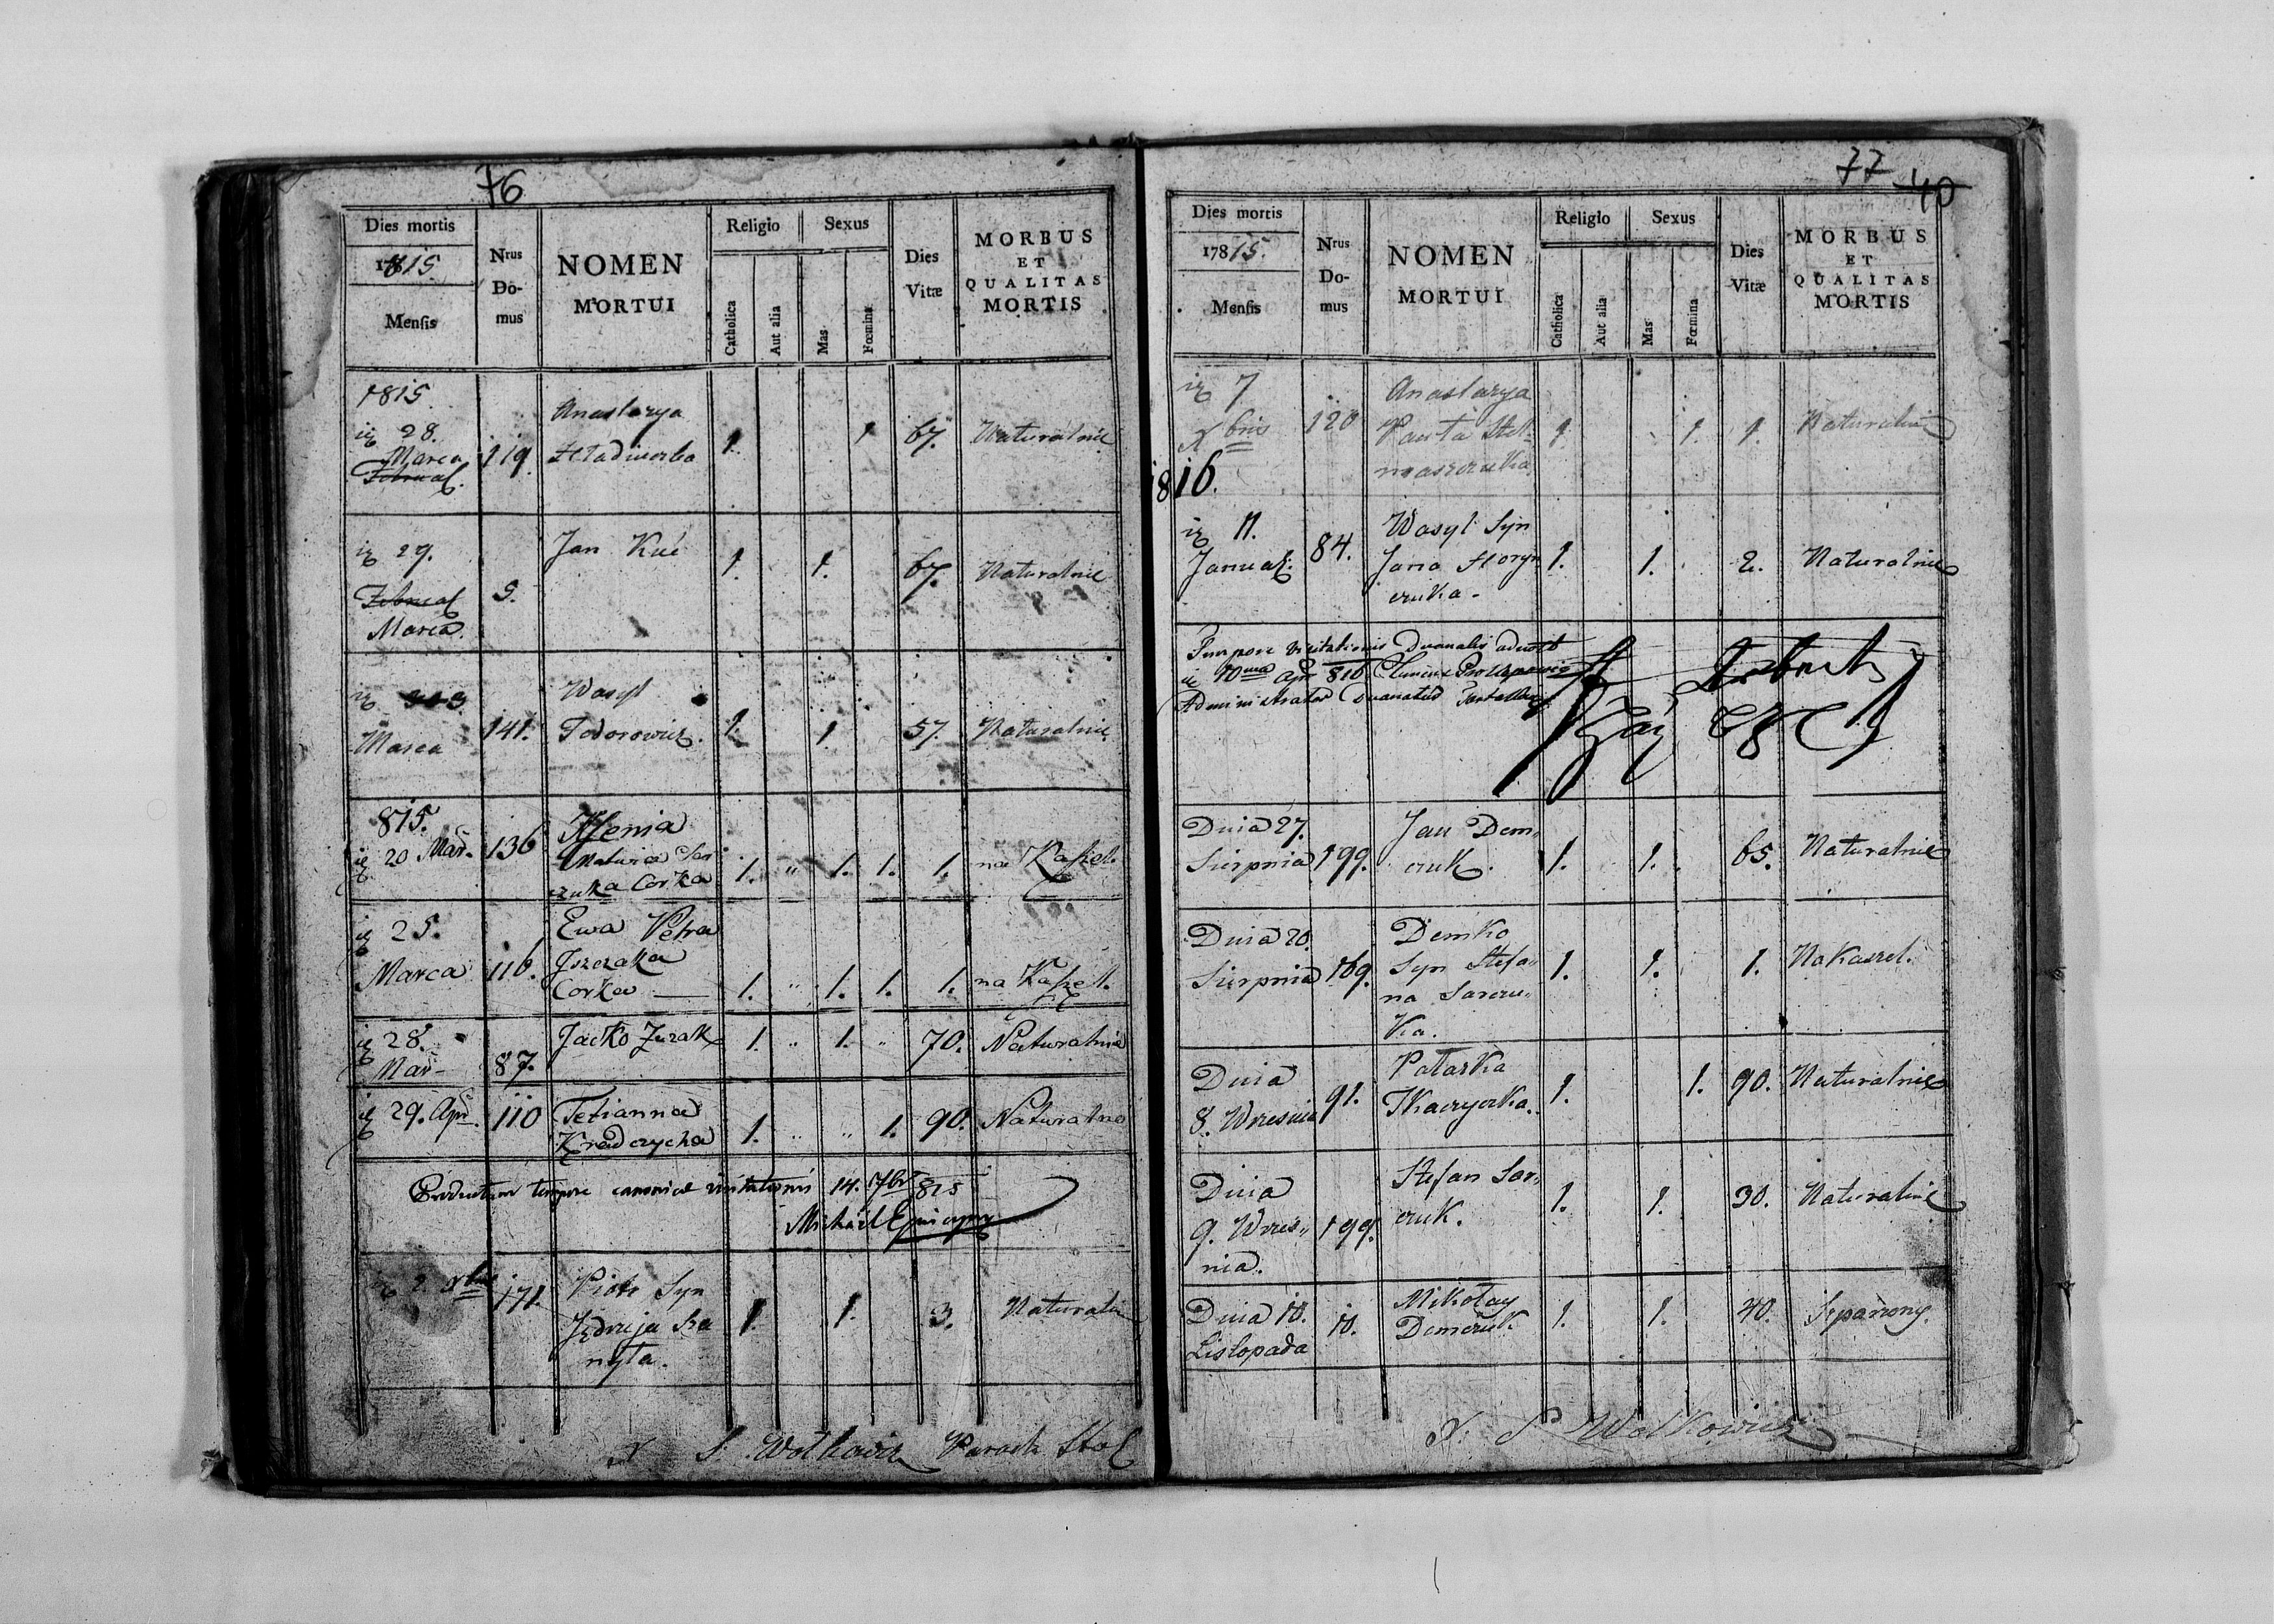 76
Dies mortis
1815.
Mensis
Nrus
Do-
mus
NOMEN
MORTUI
Religio
Catholica
Aut alia
Sexus
Mas
Fœmina
Dies
Vitæ
MORBUS
ET
QUALITAS
MORTIS
1815
28.
Marca
119.
Anastazya
1.
1
67.
Naturalnie
29.
Marca.
9.
Jan Kuć
1.
1.
67.
Naturalnie
3
Marca
141.
Wasyl
Fodorowicz.
1.
1.
57.
Naturalnie
815.
20 Mar.
136
Xsenia
czuka Corka
1. " 1. 1. 1.
na Kaszel.
25.
Marca
116.
Ewa Petra
Jszczaka
Corka
1. " 1. 1. 1.
na Kaszel.
28.
Mar-
87.
Jacko Zurak
1. " 1. " 70.
Naturalnie
29. Apr.
110
Tetianna
Krawczycha
1. " " 1. 90.
Naturalna
Productum tempore canonica visitationis 14. 7br 815
Michael Episcopus
2. Xbris
171.
Piotr Syn
Jędrzeja Sza
nyta.
1.
1.
3.
Naturalnie
X S. Wolkowicz Paroch
77
40
Dies mortis
17815.
Mensis
Nrus
Do-
mus
NOMEN
MORTUI
Religio
Catholica
Aut alia
Sexus
Mas
Fœmina
Dies
Vitæ
MORBUS
ET
QUALITAS
MORTIS
7
Xbris
120
Anastazya
Pawła Stel-
maszczuka
1.
1.
1.
Naturalnie
1816.
11.
Januar:
84.
Wasyl Syn
Jana Horyn
czuka.
1.
1.
2.
Naturalnie
Tempore visitationis
Administrator
Dnia 27.
Sierpnia
199.
Jan Dem,
czuk.
1.
1.
65.
Naturalnie
Dnia 20.
Sierpnia
169.
Demko
Syn Stefa"
na Sawczu"
ka.
1.
1.
1.
Na Kaszel.
Dnia
8. Wrzesnia
91.
Pałaszka
Tkaczyczka.
1.
1.
90.
Naturalnie
Dnia
9. Wrzes"
nia.
199.
Stefan
czuk.
1.
1.
30.
Naturalnie
Dnia 10.
Listopada
10.
Mikołay
Demczuk.
1.
1.
40.
Sparzony.
X. S Wolkowicz